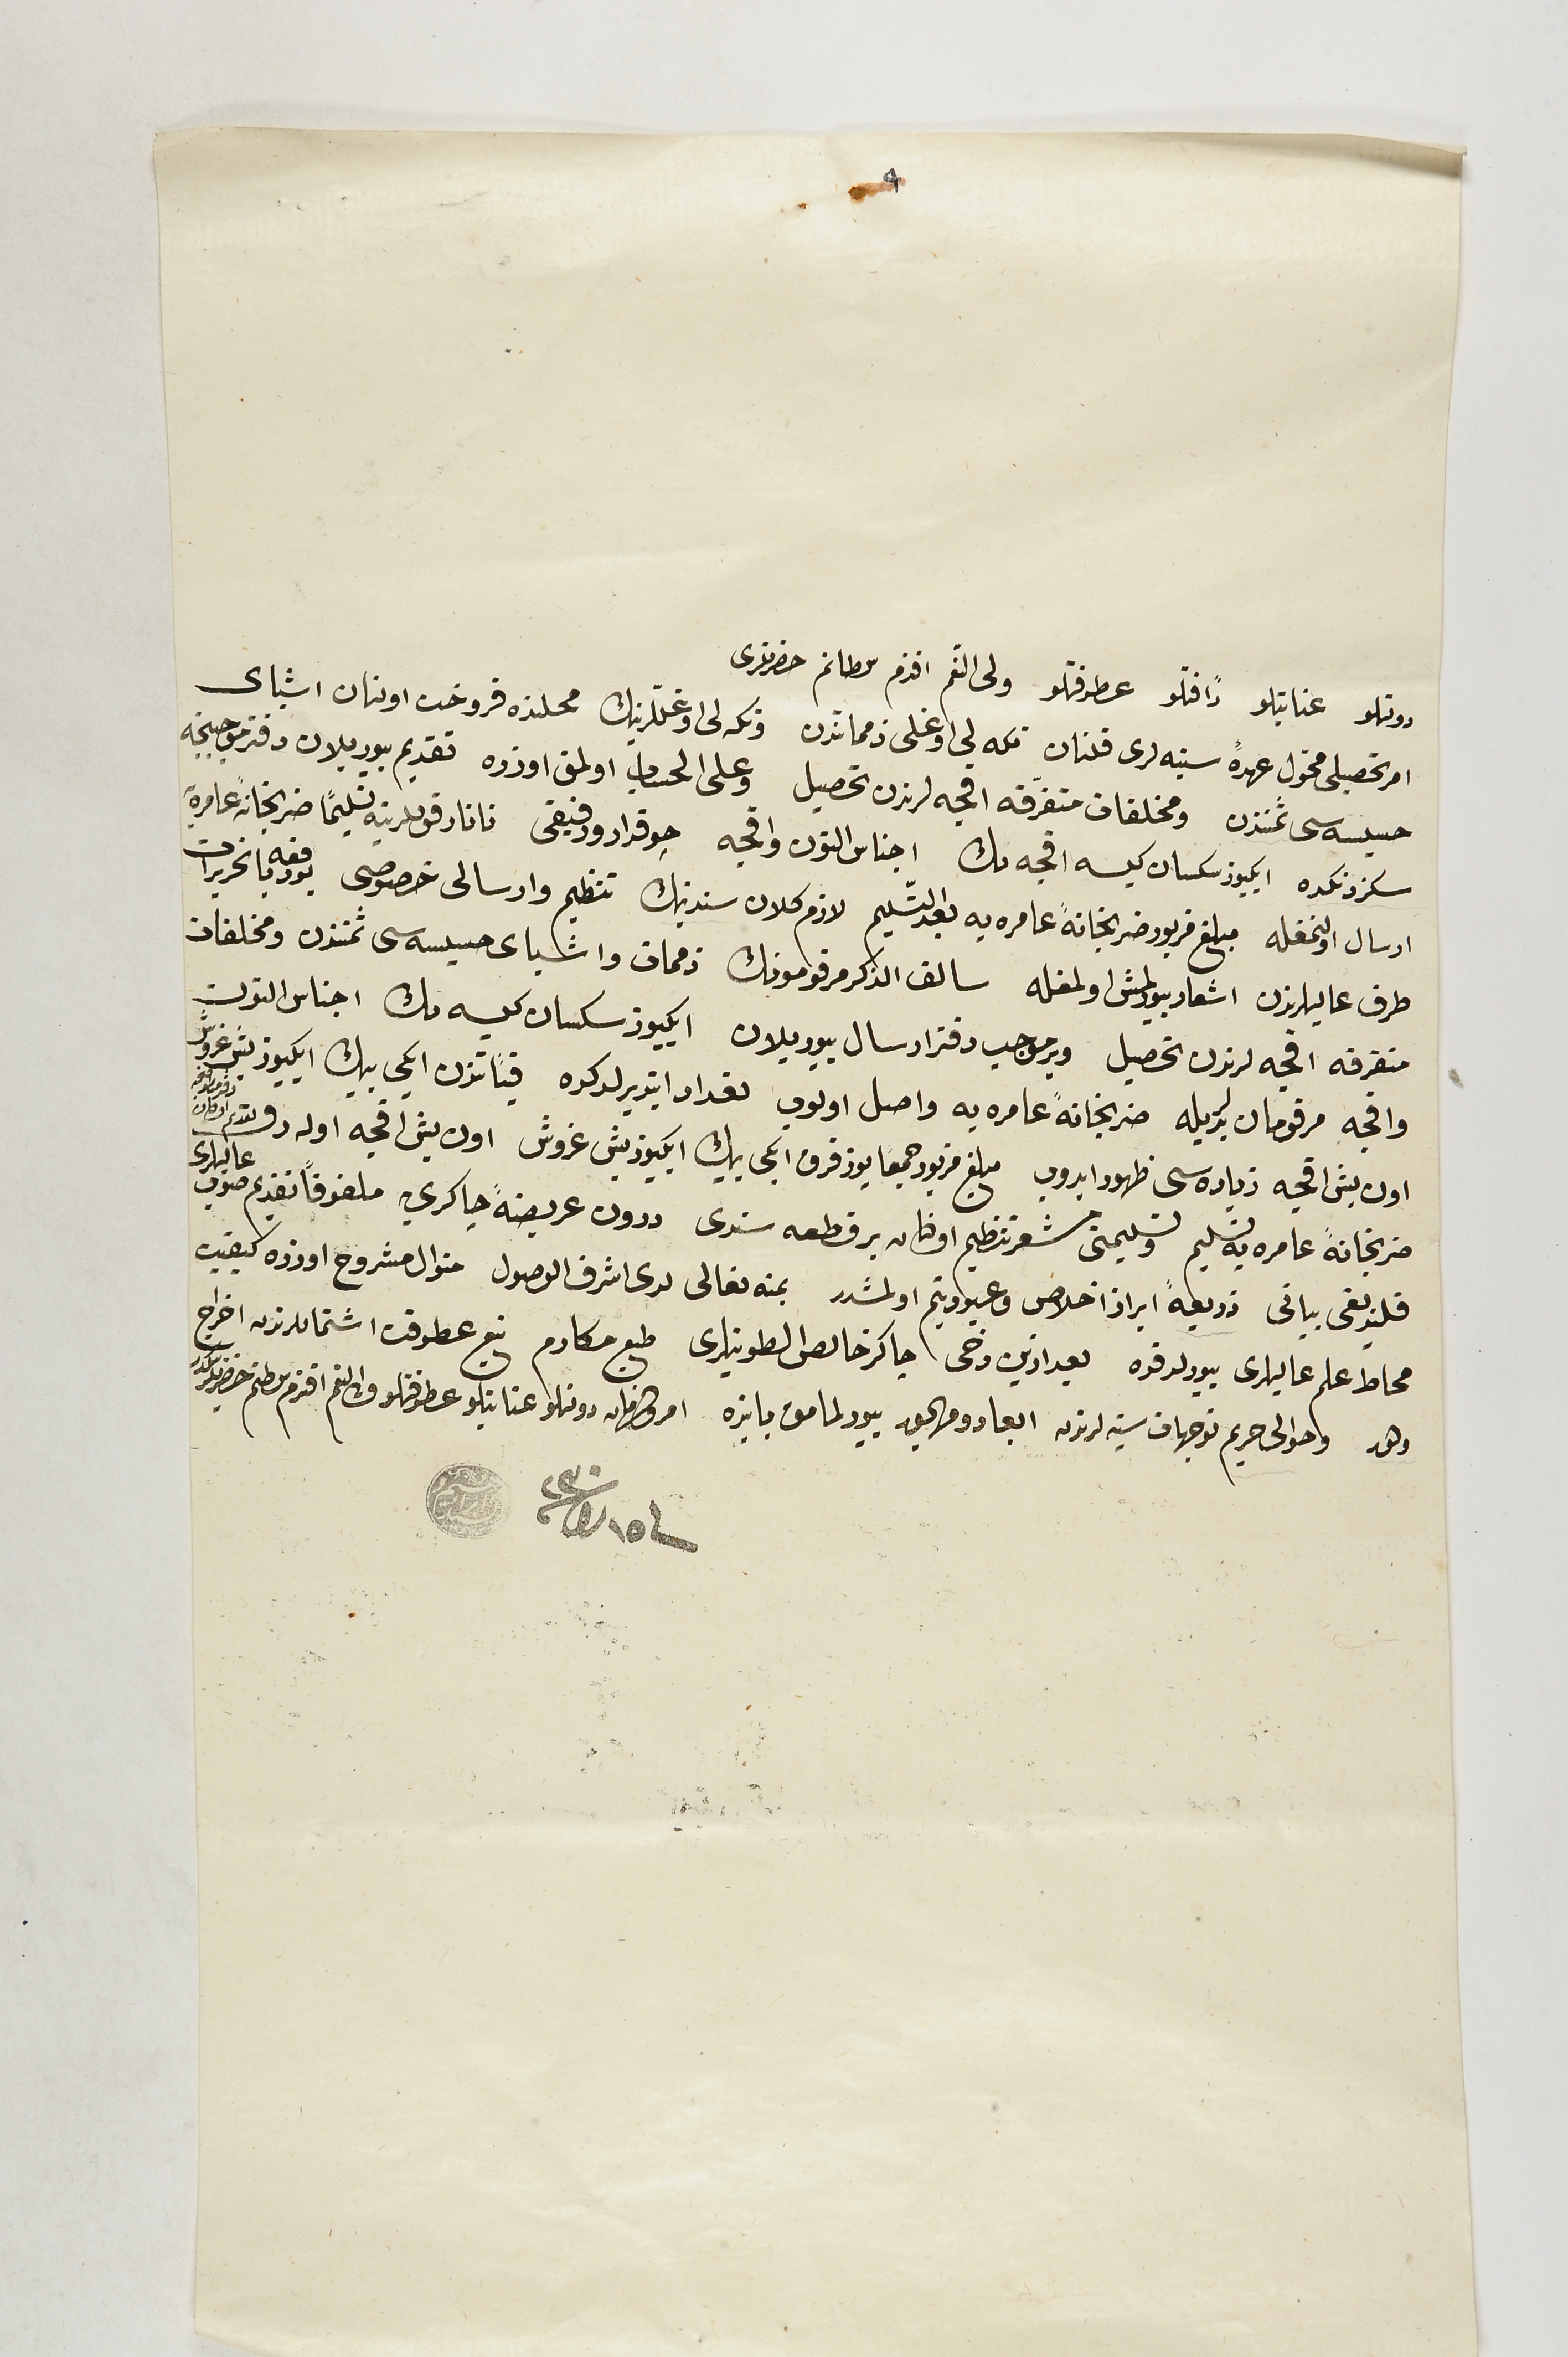 ٩
دولتلو عنایتلو رأفتلو عطوفتلو ولی النعم افندم سلطانم حضرتلری
امر تحصیلی محول عهدهٔ سنیه لری قلنان تکه لی اوغلی ذمماتندن وتکه لی اوغللرینك محلنده فروخت اولنان اشیای
خسیسه سی ثمنندن ومخلفات متفرقه اقچه لرندن تحصیل وعلی الحساب اولمق اوزره تقدیم بیوریلان دفتر موجبنجه
سکز دنکده ایکیوز سکسان کیسه اقچه لك اجناس التون واقچه چوقدار ورفیقی تاتار قوللرینه تسلیماً ضربخانهٔ عامره یه
ارسال اولنمغله مبلغ مزبور ضربخانهٔ عامره یه بعد التسلیم لازم کلان سندینك تنظیم وارسالی خصوصی بودفعه با تحریرات
طرف عالیلرندن اشعار بیورلمش اولمغله سالف الذکر مرقومونك ذممات واشیای خسیسه سی ثمنندن ومخلفات
متفرقه اقچه لرندن تحصیل وبرموجب دفتر ارسال بیوریلان ایکیوز سکسان کیسه لك اجناس التون
واقچه مرقومان یدیله ضربخانهٔ عامره یه واصل اولوب تعداد ایتدیرلدکده فیئاتندن ایکی بیك ایکیوز بش غروش
اون بش اقچه زیاده سی ظهور ایدوب مبلغ مزبور جمعاً یوز قرق ایکی بیك ایکیوز بش غروش اون بش اقچه اوله رق
ضربخانهٔ عامره یه تسلیم وتسلیمنی مشعر تنظیم اولنان بر قطعه سندی درون عریضهٔ چاکری یه ملفوفاً تقدیم صوب عالیلری
قلندیغی بیانی ذریعهٔ ابراز اخلاص وعبودیتم اولمشدر بمنه تعالی لدی اشرف الوصول منوال مشروح اوزره کیفیت
محاط علم عالیلری بیورلدقده بعد ازین دخی چاکر خالص الطویتلری طبع مکارم نبع عطوفت اشتماللرندن اخراج
وحوالی حریم توجهات سنیه لرندن ابعاد ومهجور بیورلمامق بابنده امر وفرمان دولتلو عنایتلو عطوفتلو ولی النعم افندم سلطانم حضرتلرینکدر
فی ١٥